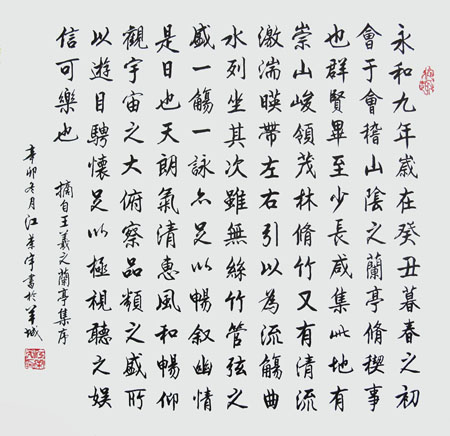 永和九年歲在癸丑暮春之初
會于會稽山陰之蘭亭脩禊事
也群賢畢至少長咸集此地有
崇山峻領茂林脩竹又有清流
激湍暎帶左右引以為流觴曲
水列坐其次雖無絲竹管弦之
盛一觴一詠亦足以暢叙幽情
是日也天朗氣清惠風和暢仰
觀宇宙之大俯察品類之盛所
以遊目騁懷足以極視聽之娛
信可樂也
摘自王羲之蘭亭集序
辛卯冬月江宇書於羊城